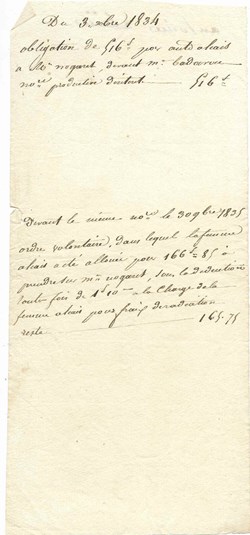 Du 3 xbre 1834
obligation de 516f par auts alais
à Mr nogaret, devant me
nore production dudit 516f
Devant le même nore le 30 9bre 1835
ordre volontaire, dans lequel la femme
alais a été allouée pour 166f=85 à
prendre sur mr nogaret, sous la deduction
toute fois de 1f 10 = a la Charge de la
femme alais pour frais de radiation
reste 165.75